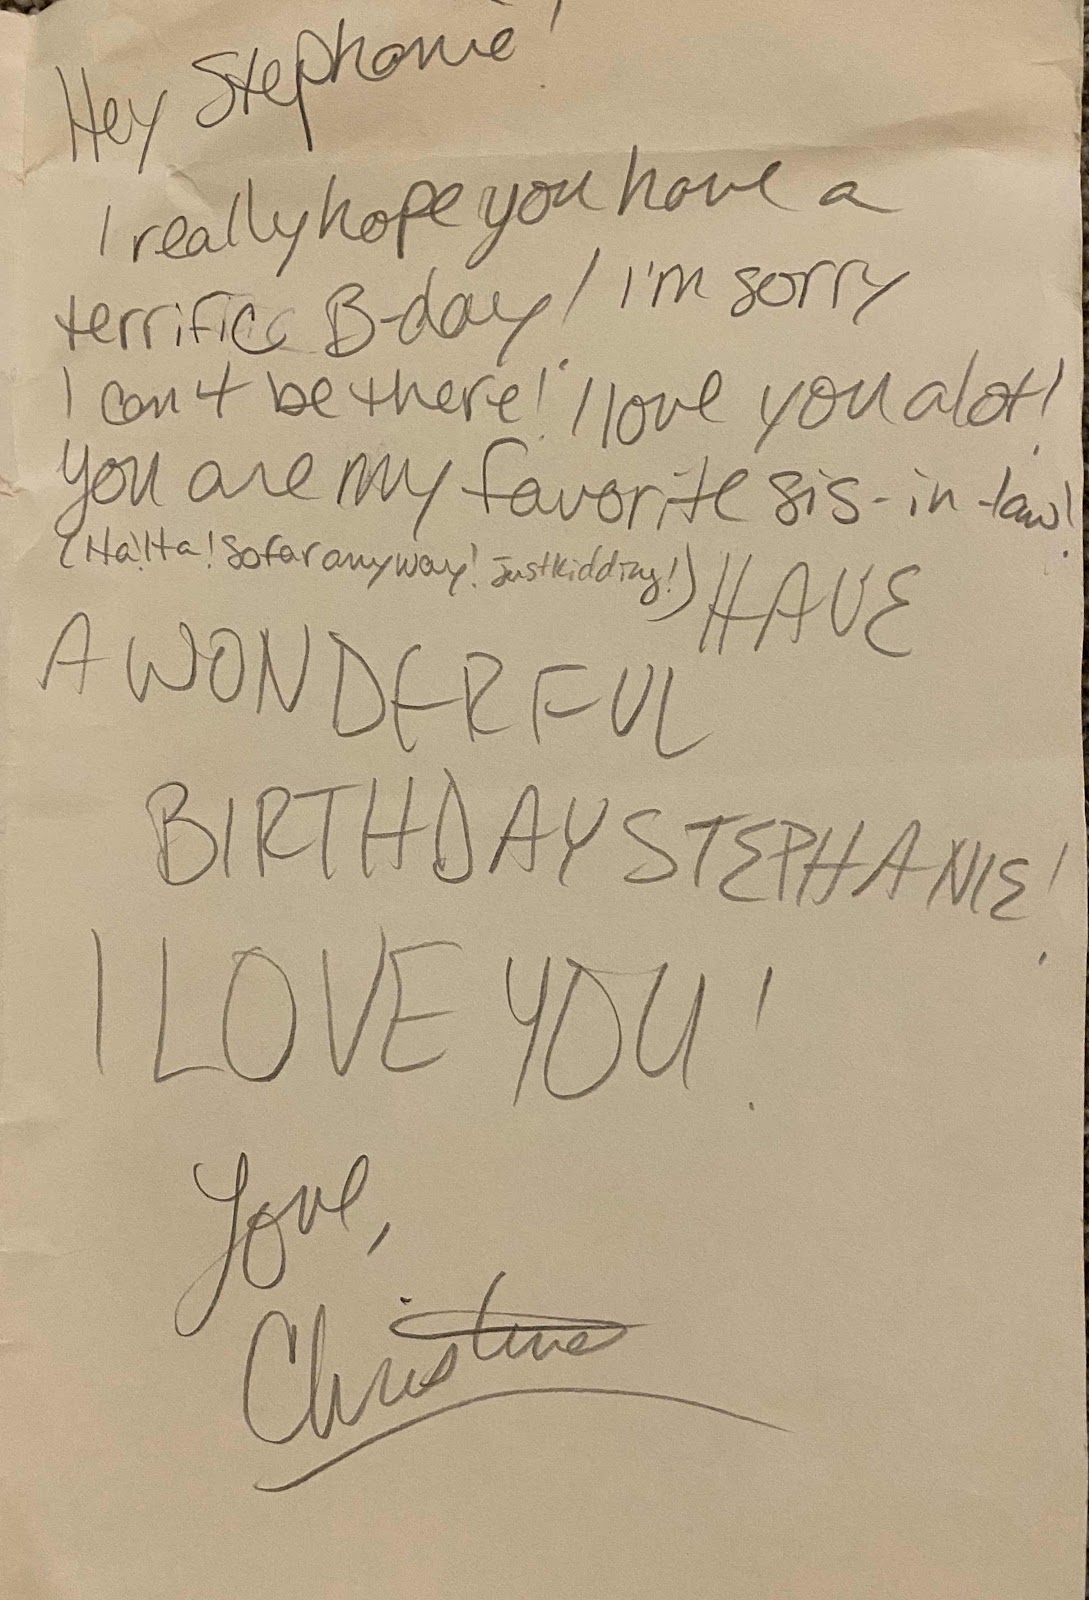 Hey Stephanie!
I really hope you have a
terrific B-day! I'm sorry
I can't be there! I love you alot!
You are my favorite sis-in-law!
(Ha! Ha! So far anyway! Just kidding!) HAVE
A WONDERFUL
BIRTHDAY STEPHANIE!
I LOVE YOU!
Love,
Christine